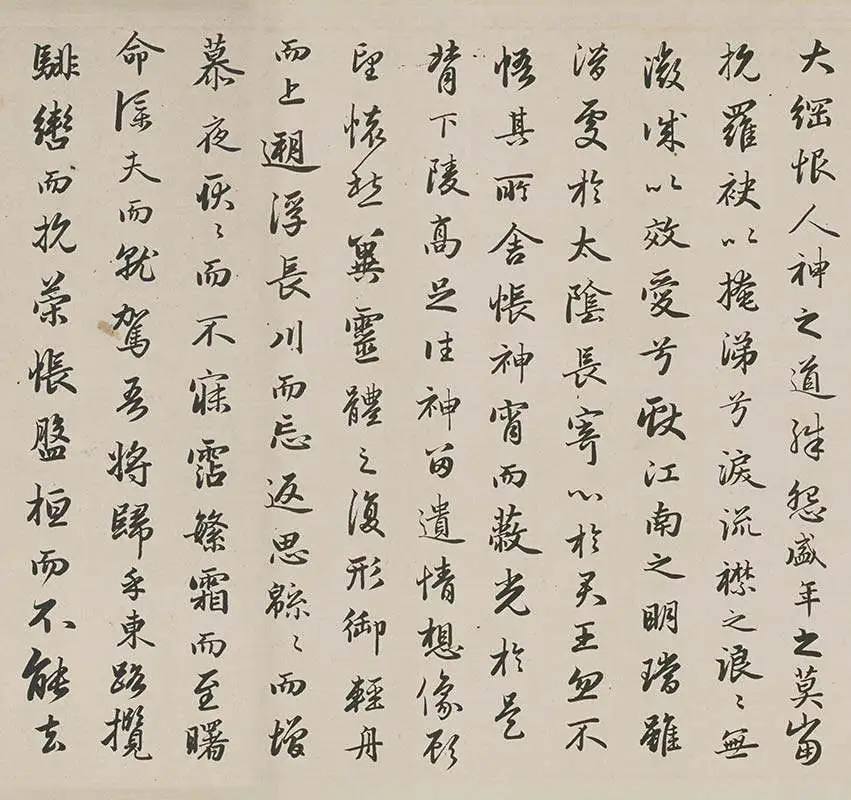 大綱恨人神之道殊怨盛年之莫當
抗羅袂以掩涕兮淚流襟之浪〻無
微誠以效愛兮獻江南之明璫雖
潛處於太陰長寄心於君王忽不
悟其所舍悵神宵而蔽光於是
背下陵高足往神留遺情想像顧
望懷愁冀靈體之復形御輕舟
而上遡浮長川而忘返思緜〻而增
慕夜耿〻而不寐霑繁霜而至曙
命僕夫而就駕吾將歸乎東路攬
騑轡而抗策悵盤桓而不能去